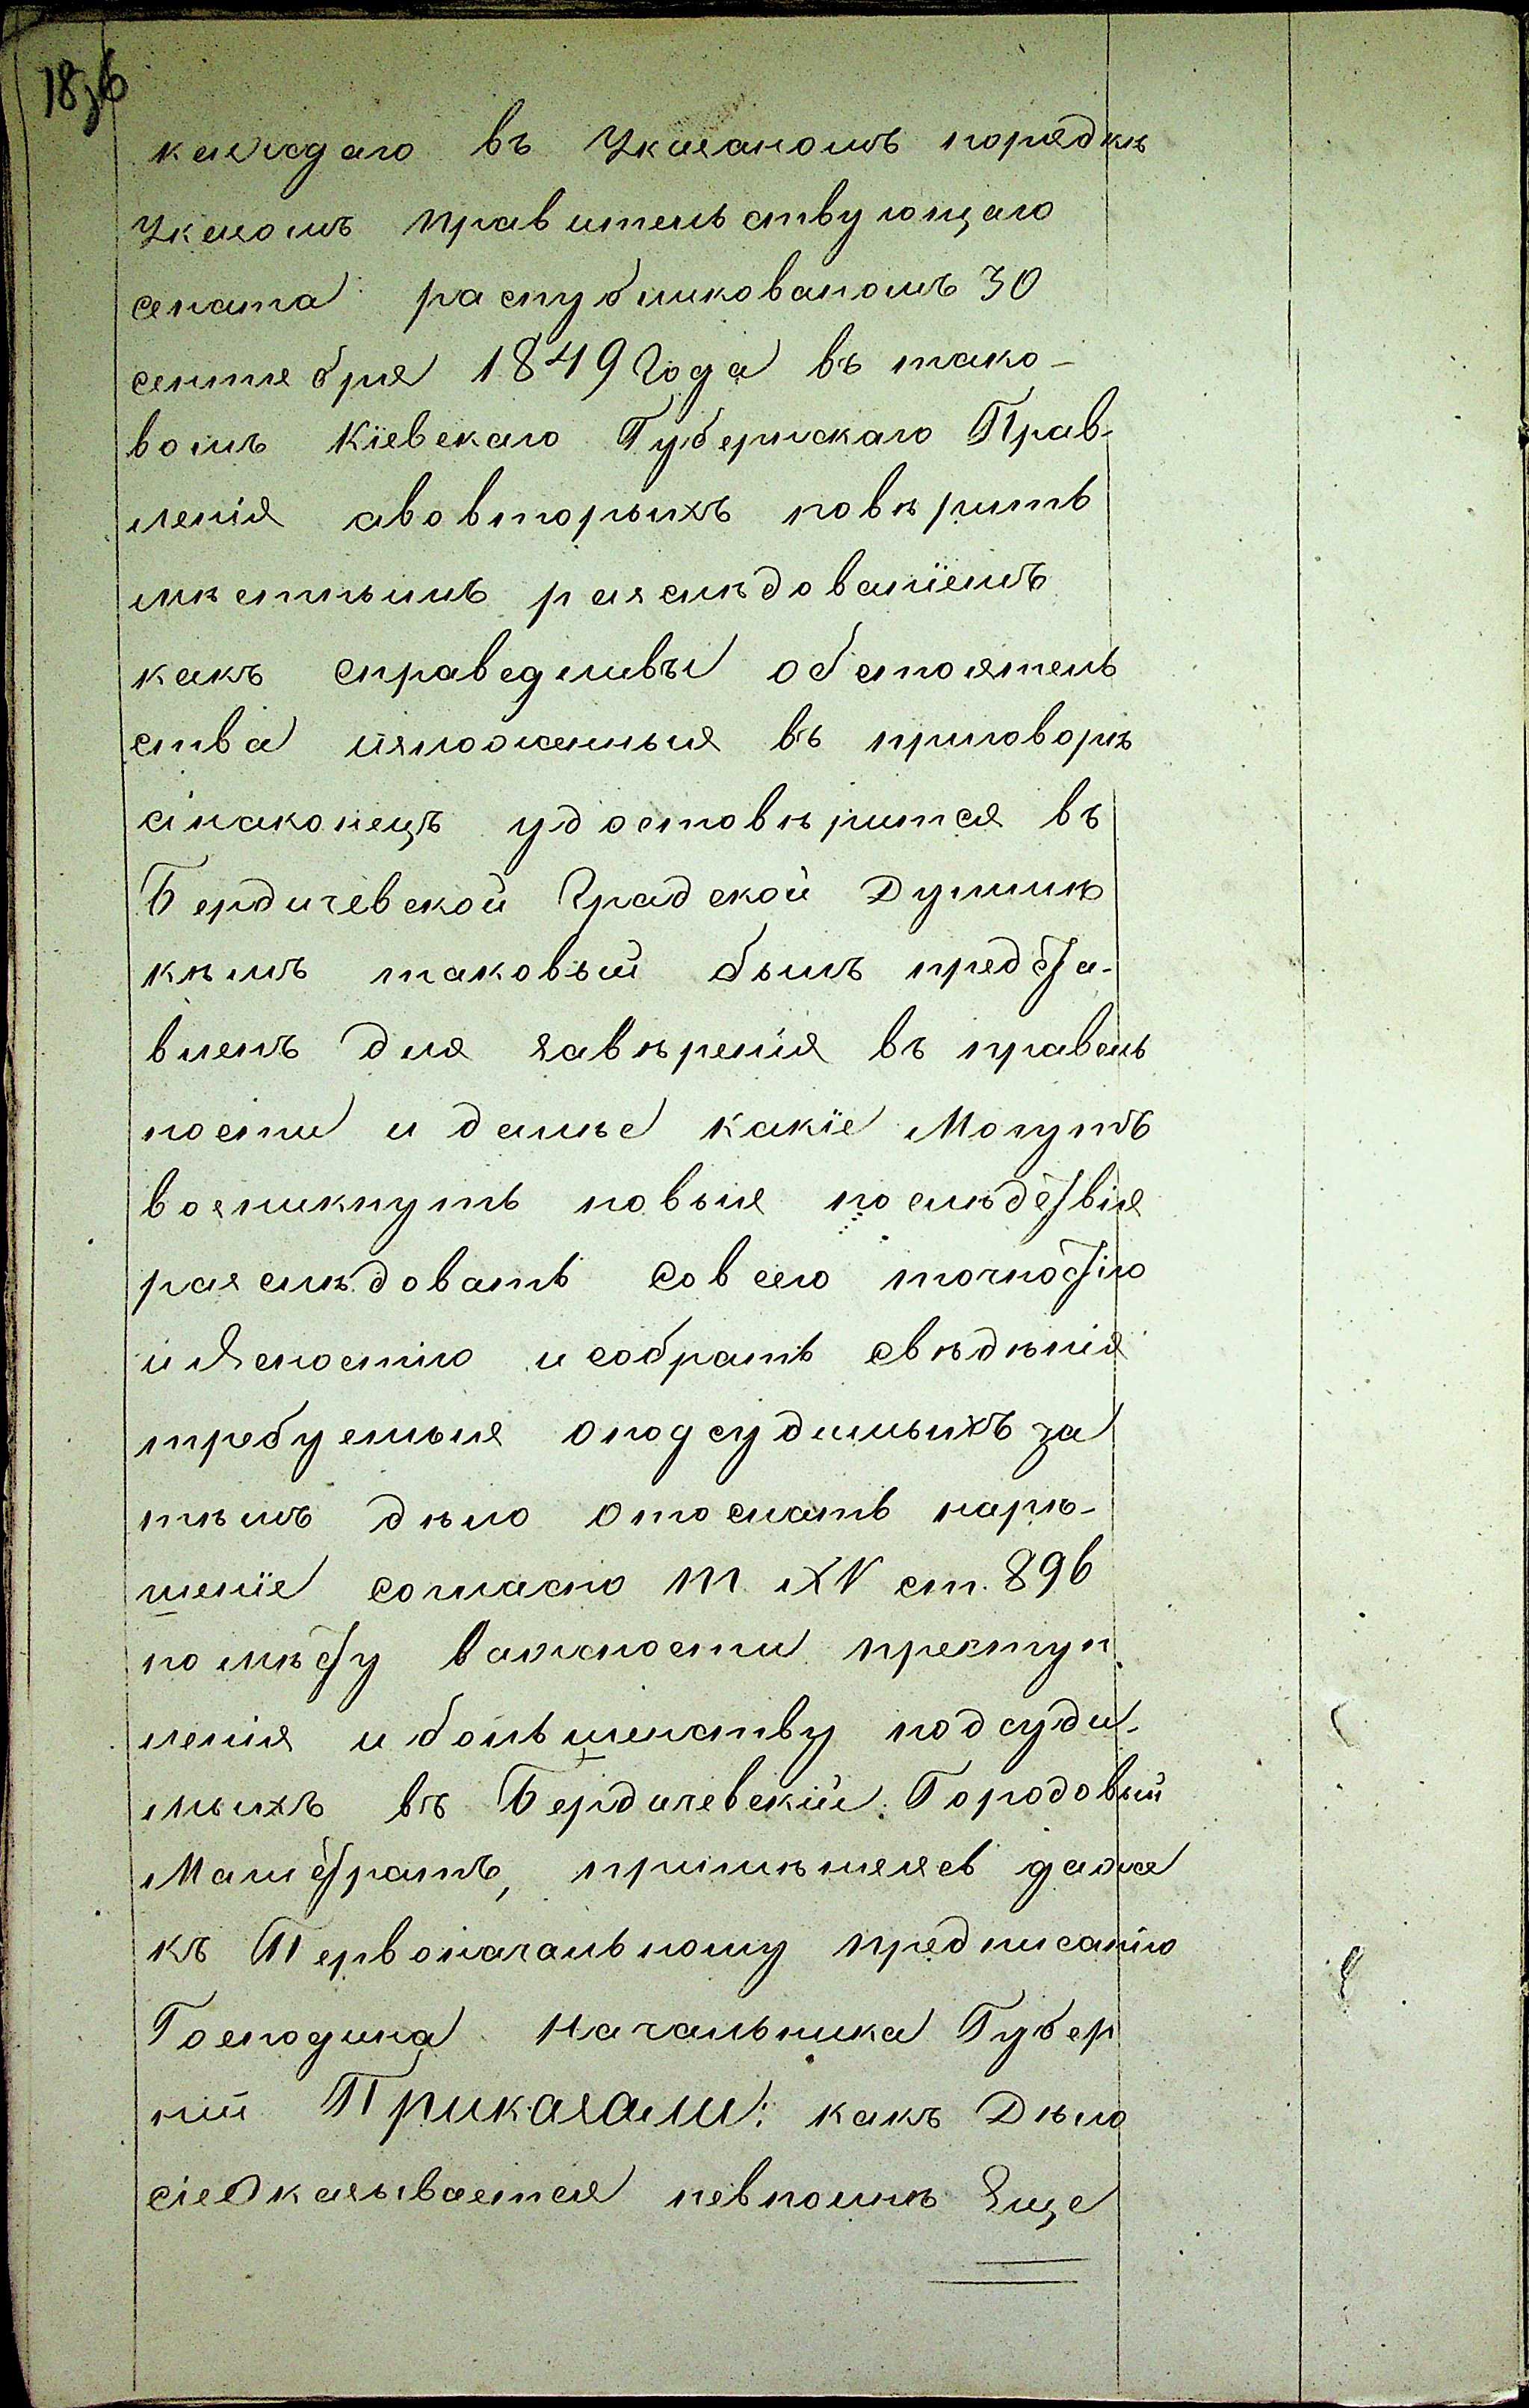 1836
каждаго въ Указаномъ порядкѣ
Указомъ правительствующаго
сената распубликованомъ 30
сентября 1849 Года въ тако-
вомъ Кіевскаго Губернскаго Прав-
ленія авовторыхъ повѣрить
мѣстнымъ разслѣдованіемъ
какъ справедливы обстоятель
ства изложенныя въ приговорѣ
анаконецъ удостовѣрится въ
Бердичевской Градской Думмѣ
кѣмъ таковый былъ предста-
вленъ для завѣренія въ правель
ности и далѣе какіе Могутъ
возникнуть новыя послѣдствія
разслѣдовать Совсею точностію
и Ясностію и собрать свѣдѣнія
требуемыя оподсудимыхъ за
тѣмъ дѣло Отослать нарѣ-
шеніе согласно Т. XV ст. 896
по мѣсту важности преступ
ленія и большенству подсуди-
мыхъ въ Бердичевскій Городовый
Магистратъ, примѣняясь даже
къ Первоначальному предписанію
Господина Начальника Губер
ніи Приказали: какъ Дѣло
сіе Оказывается невполнѣ Еще